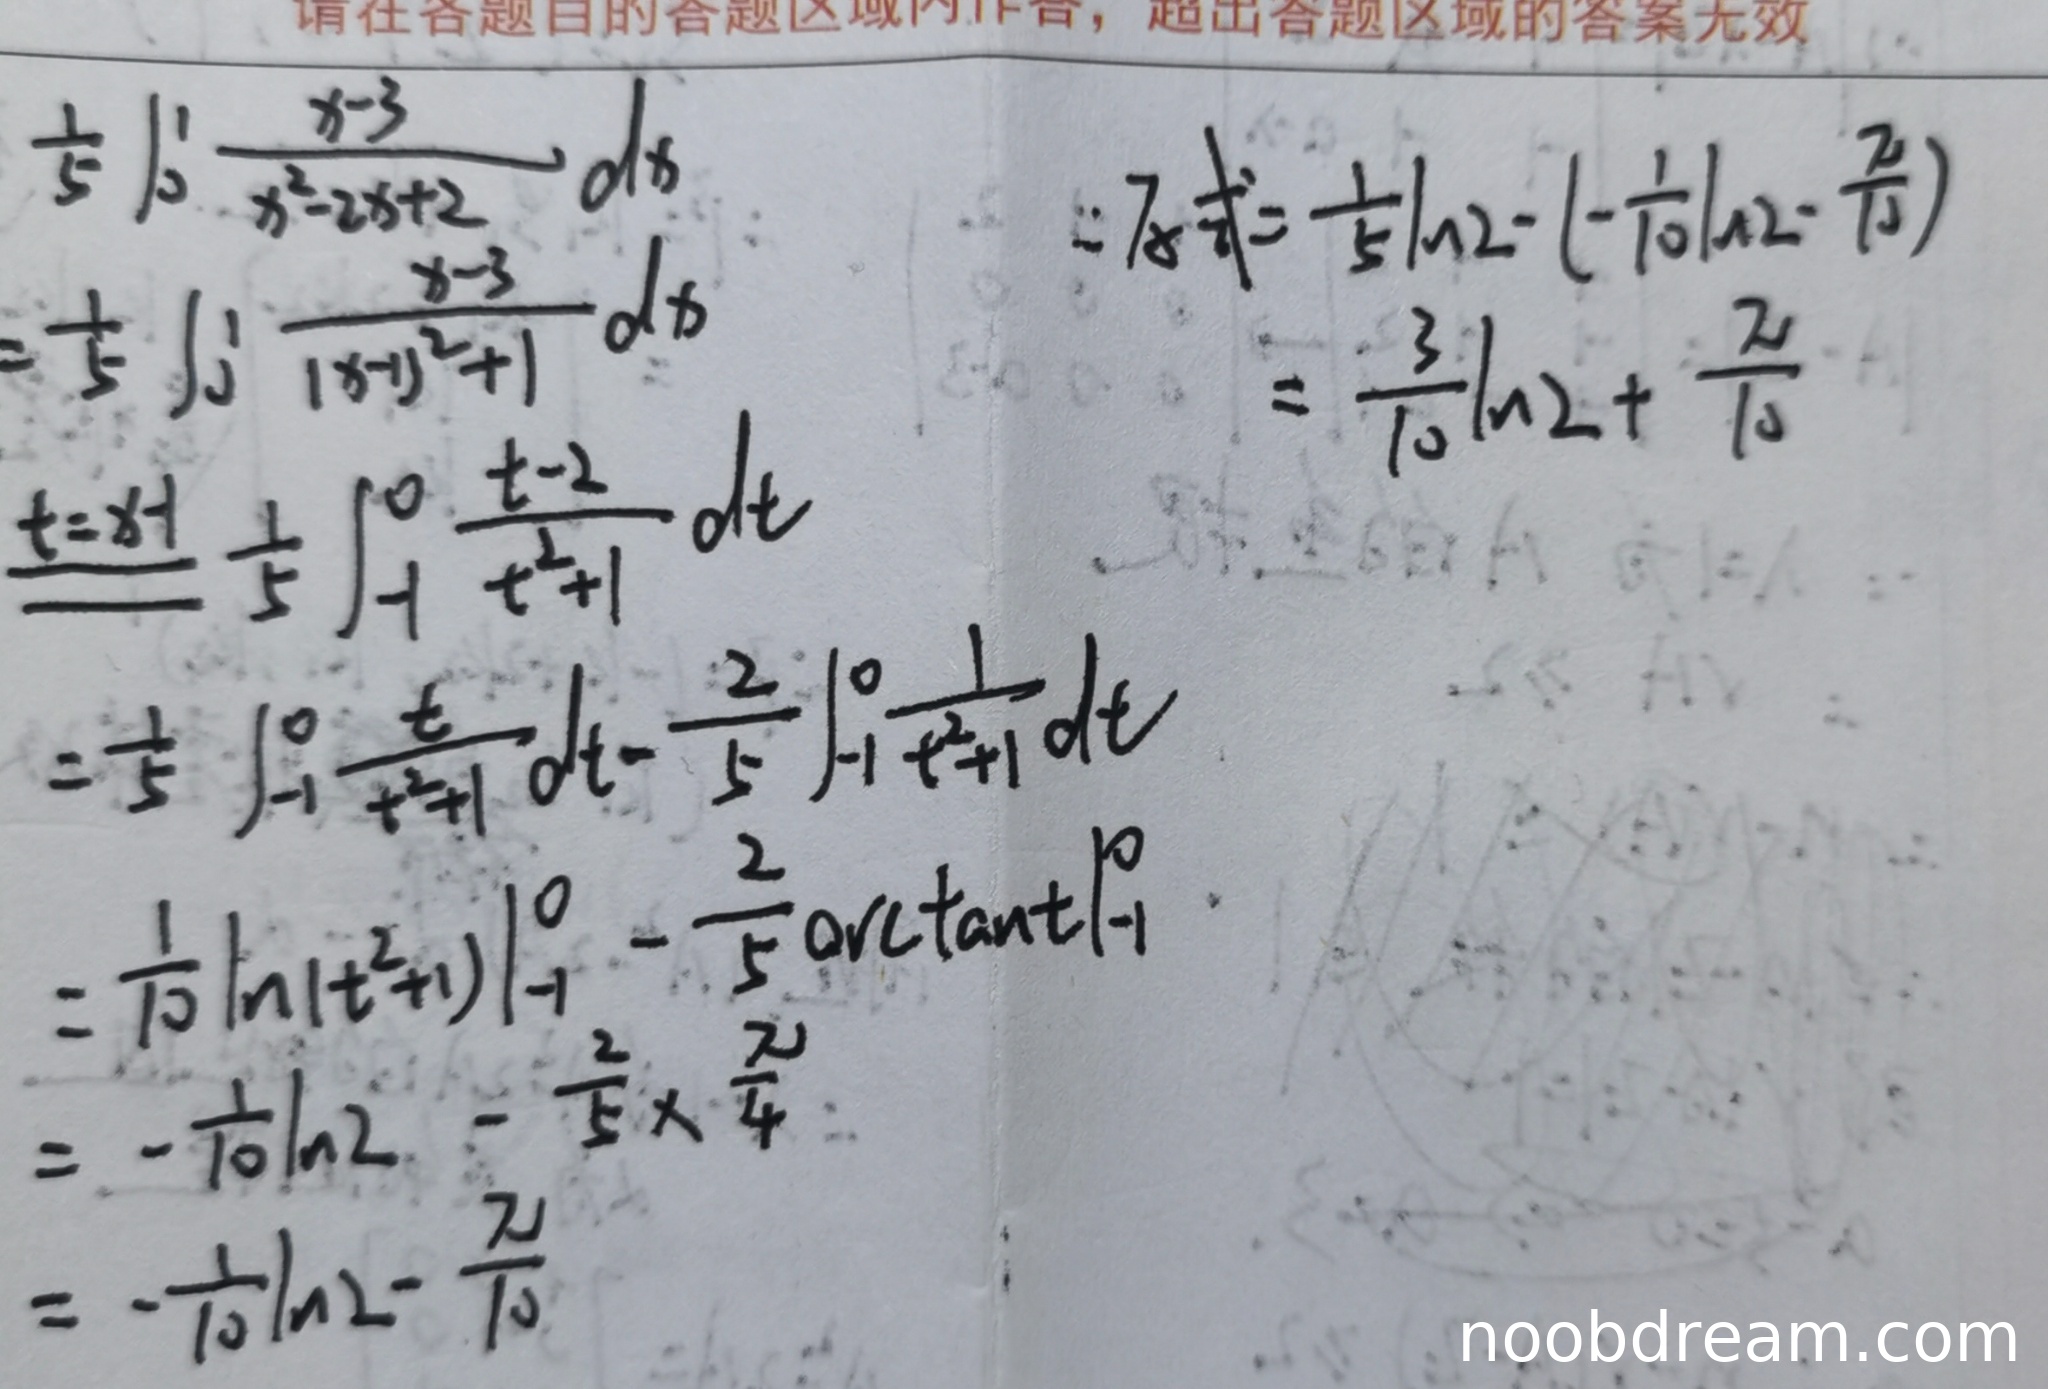 请在各题目的答题区域内作答，超出答题区域的答案无效
1/5 ∫₀¹ (x-3)/(x²-2x+2) dx
= 1/5 ∫₀¹ (x-3)/((x-1)²+1) dx
t=x-1 1/5 ∫₋₁⁰ (t-2)/(t²+1) dt
= 1/5 ∫₋₁⁰ t/(t²+1) dt - 2/5 ∫₋₁⁰ 1/(t²+1) dt
= 1/10 ln(t²+1)|₋₁⁰ - 2/5 arctant|₋₁⁰
= -1/10 ln2 - 2/5 × π/4
= -1/10 ln2 - π/10
= 1/5 ln2 - (-1/10 ln2 - π/10)
= 3/10 ln2 + π/10
noobdream.com